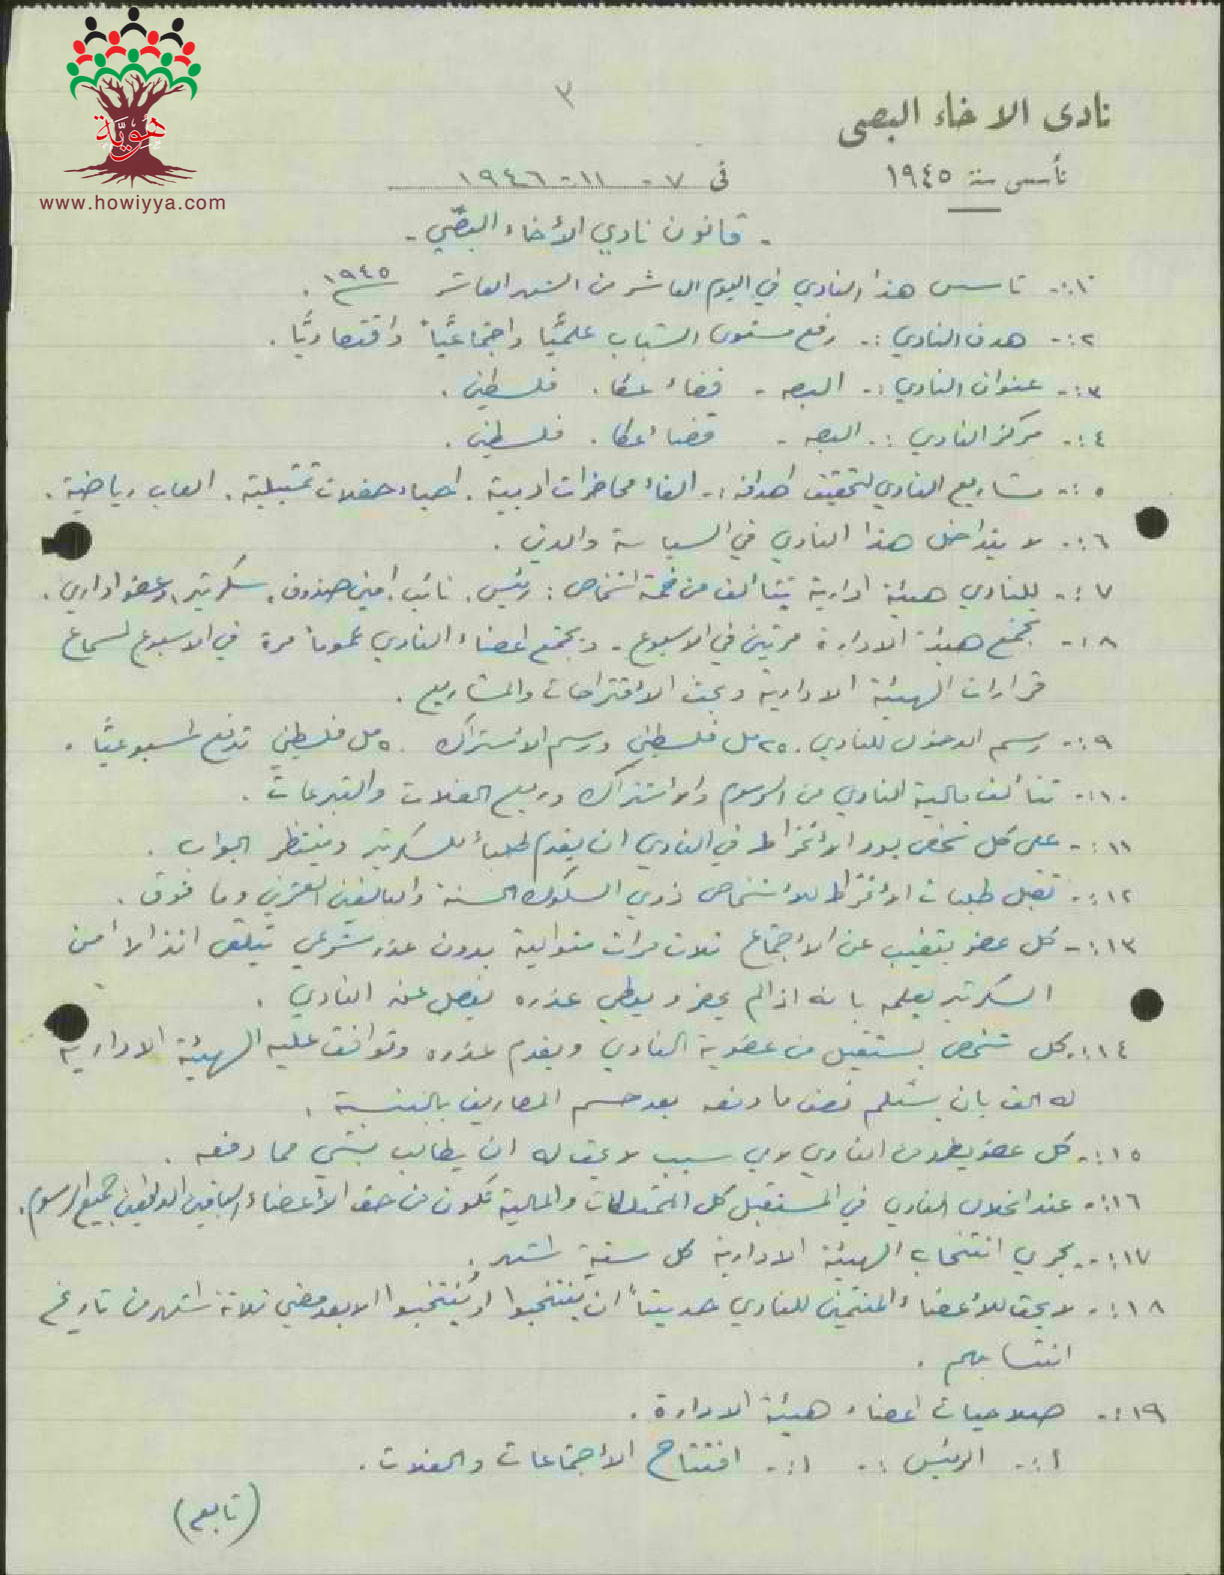 هوية
www.howiyya.com
٣
نادى الاخاء البصى
تأسس سنة ١٩٤٥
فى ٧ - ١١ - ١٩٤٦
- قانون نادي الأخاء البصّي -
١:- تاسس هذا النادي في اليوم العاشر من الشهر العاشر ١٩٤٥.
٢:- هدف النادي :- رفع مستوى الشباب علميًّا واجتماعيًّا واقتصاديًّا.
٣:- عنوان النادي :- البصه - قضاء عكا. فلسطين.
٤:- مركز النادي :- البصه - قضاء عكا. فلسطين.
٥:- مشاريع النادي لتحقيق اهدافه :- القاء محاضرات ادبية. احياء حفلات تمثيلية. العاب رياضية.
٦:- لا يتداخل هذا النادي في السياسة والدين.
٧:- للنادي هيئة ادارية تتألف من خمسة اشخاص : رئيس. نائب. امين صندوق. سكرتير. وعضو اداري.
٨:- تجتمع هيئة الادارة مرتين في الاسبوع - ويجتمع اعضاء النادي عموماً مرة في الاسبوع لسماع
قرارات الهيئة الادارية وبحث الاقتراحات والمشاريع.
٩:- رسم الدخول للنادي ٢٥٠ مل فلسطيني ورسم الأشتراك ٥٠ مل فلسطيني تدفع اسبوعيًّا.
١٠:- تتألف مالية النادي من الرسوم والأشتراك وريع الحفلات والتبرعات.
١١:- على كل شخص يود الأنخراط في النادي ان يقدم طلباً للسكرتير وينتظر الجواب.
١٢:- تقبل طلبات الأنخراط للأشخاص ذوي السلوك الحسنة والبالغين العشرين وما فوق.
١٣:- كل عضو يتغيب عن الأجتماع ثلاث مرات متوالية بدون عذر شرعي يتلقى انذاراً من
السكرتير يعلمه بانه اذا لم يحضر ويعطي عذره يفصل عن النادي.
١٤:- كل شخص يستقيل من عضوية النادي ويقدم عذره وتوافق عليه الهيئة الادارية
له الحق بان يستلم نصف ما دفعه بعد حسم المصاريف بالنسبة.
١٥:- كل عضو يطرد من النادي لاي سبب لا يحق له ان يطالب بشي مما دفعه.
١٦:- عند انحلال النادي في المستقبل كل الممتلكات والمالية تكون من حق الأعضاء الباقين الدافعين جميع الرسوم.
١٧:- يجري انتخاب الهيئة الادارية كل ستة اشهر.
١٨:- لا يحق للأعضاء المنتمين للنادي حديثاً ان يَنتخبوا او يُنتخبوا الا بعد مضي ثلاثة اشهر من تاريخ
انتسابهم.
١٩:- صلاحيات اعضاء هيئة الادارة.
أ:- الرئيس :- ١:- افتتاح الأجتماعات والحفلات.
(تابع)